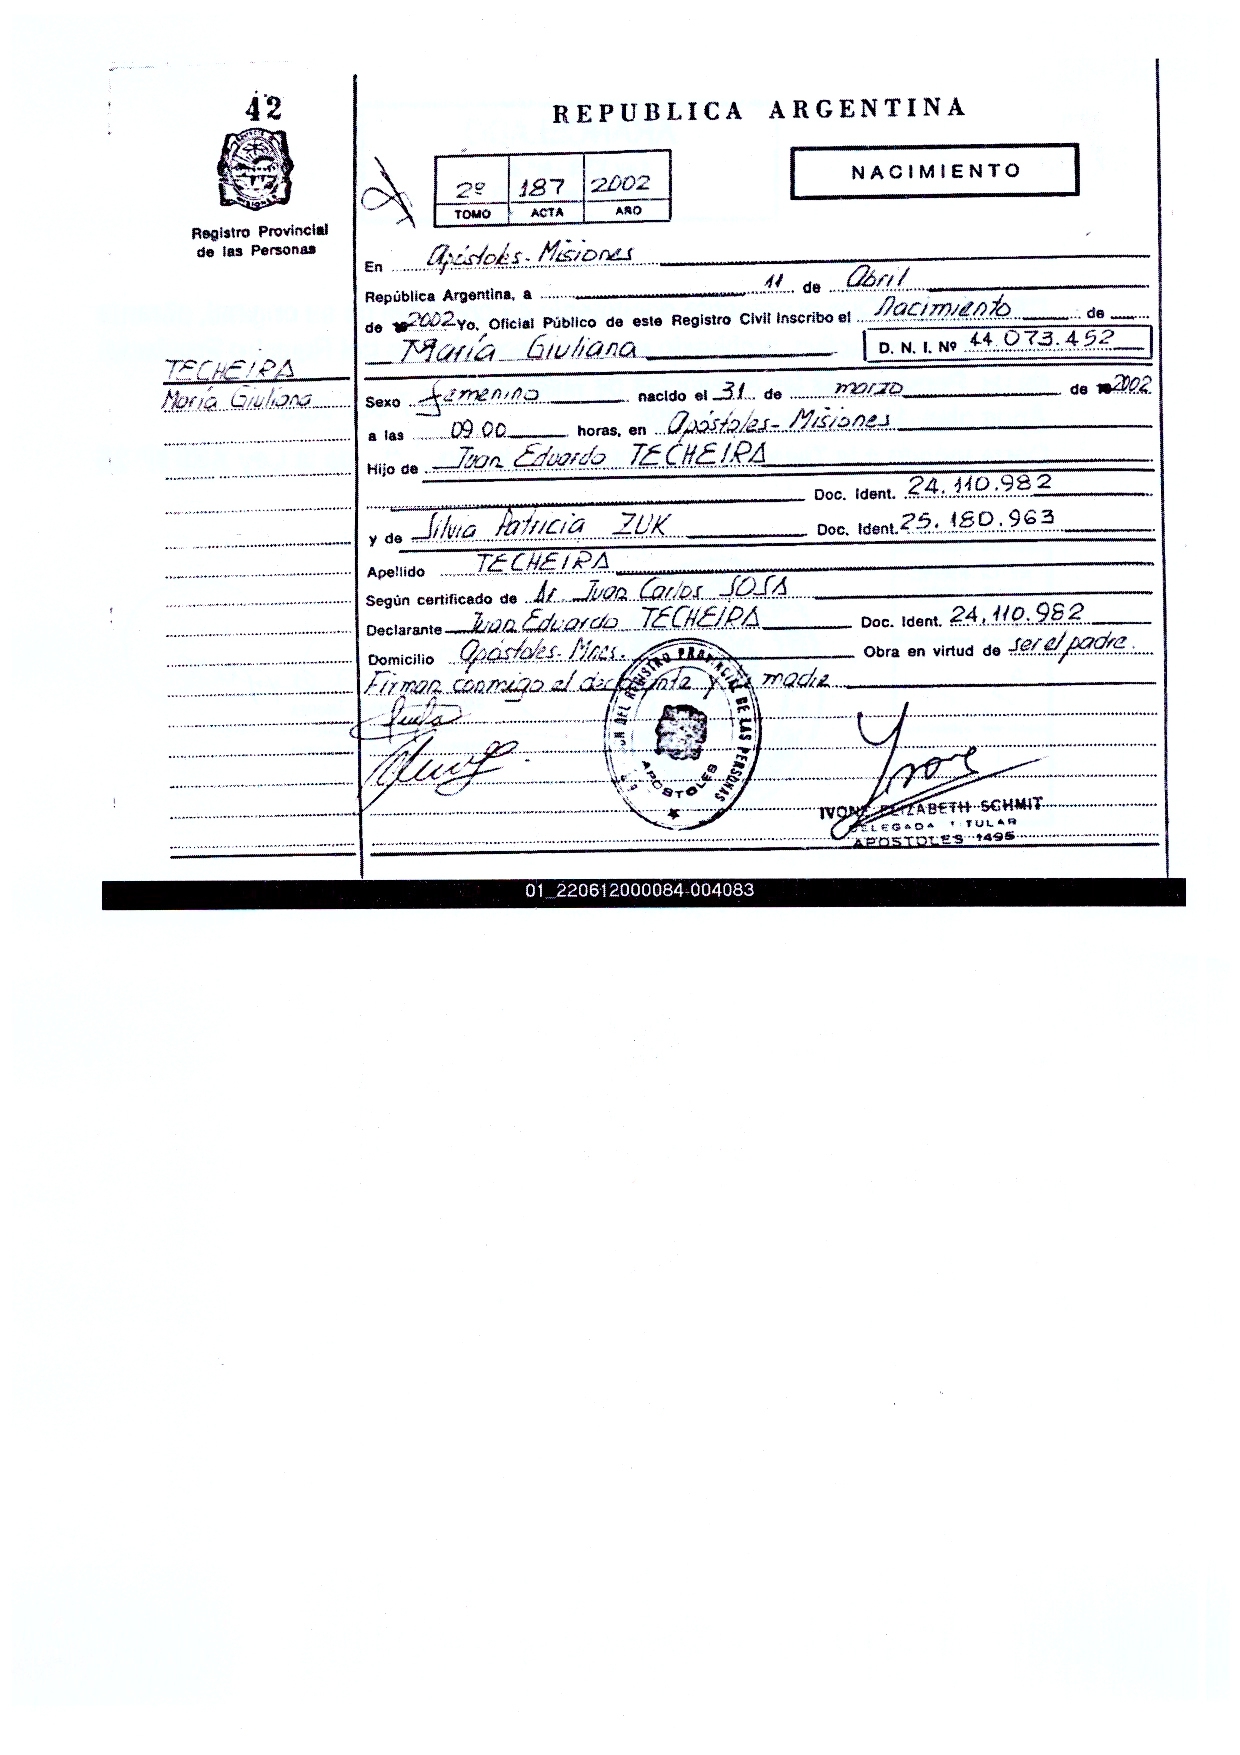 42
REPUBLICA ARGENTINA
NACIMIENTO
2º 187 2002
TOMO ACTA AÑO
Registro Provincial
de las Personas
En Apóstoles - Misiones
República Argentina, a 11 de Abril
de 2002 Yo, Oficial Público de este Registro Civil Inscribo el Nacimiento de
María Giuliana D. N. I. Nº 44 073.452
TECHEIRA
María Giuliana
Sexo femenino nacido el 31 de marzo de 2002
a las 09 00 horas, en Apóstoles - Misiones
Hijo de Juan Eduardo TECHEIRA
Doc. Ident. 24.110.982
y de Silvia Patricia ZUK Doc. Ident. 25.180.963
Apellido TECHEIRA
Según certificado de Dr. Juan Carlos SOSA
Declarante Juan Eduardo TECHEIRA Doc. Ident. 24.110.982
Domicilio Apóstoles - Mnes. Obra en virtud de ser el padre.
Firman conmigo el declarante y madre
DEL REGISTRO PROVINCIAL DE LAS PERSONAS
APOSTOLES
IVONE ELIZABETH SCHMIT
DELEGADA TITULAR
APOSTOLES 1495
01_220612000084-004083